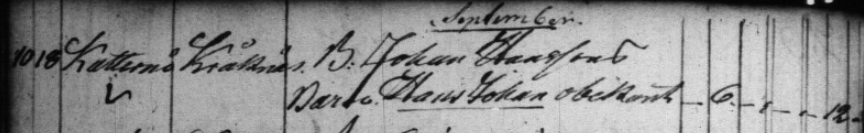 September.
10 18 Katternö Kråknäs. B. Johan Hanssons
Barn. Hans Johan obekant – 6 – „ – „ 12.